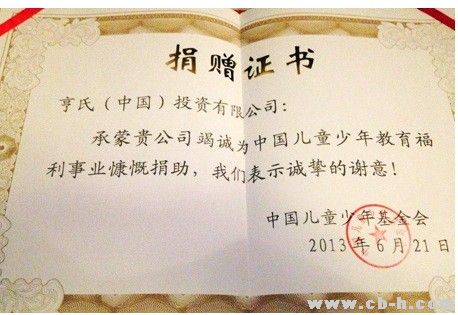 捐赠证书
亨氏（中国）投资有限公司：
承蒙贵公司竭诚为中国儿童少年教育福
利事业慷慨捐助，我们表示诚挚的谢意！
中国儿童少年基金会
2013年6月21日
www.cb-h.com